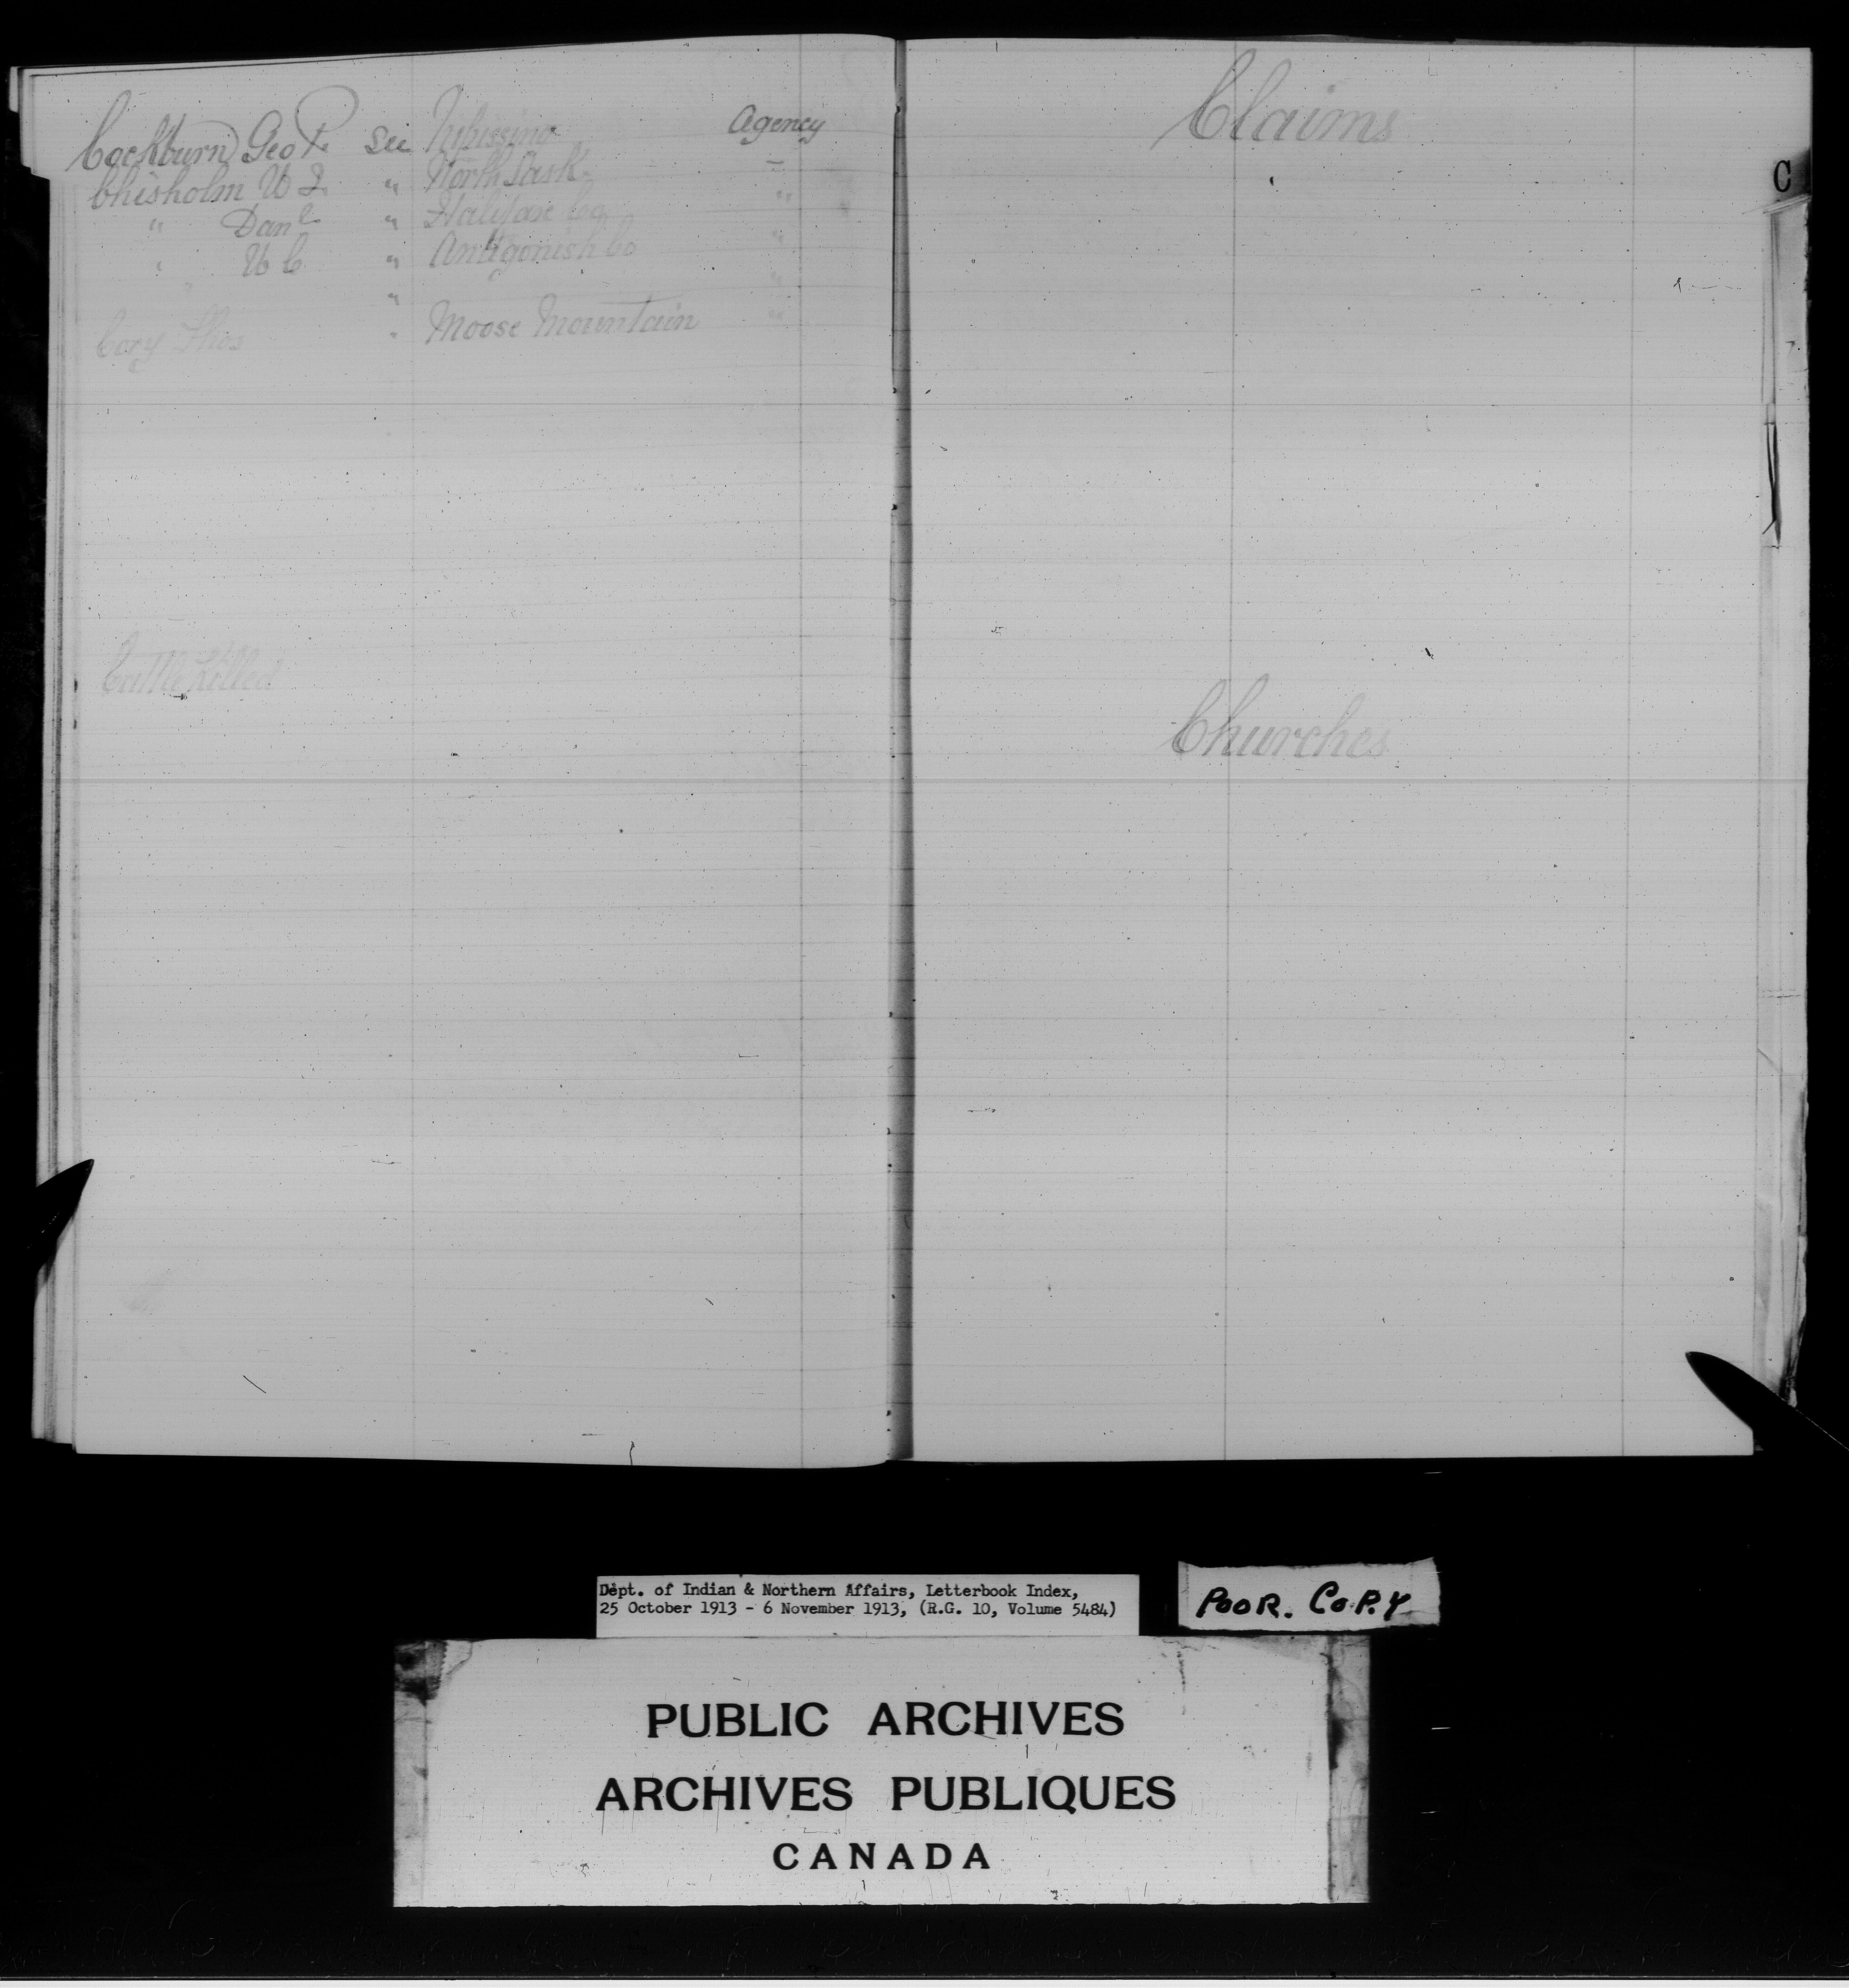 Cockburn Geo P. see Nipissing Agency
Chisholm W J. " North Sask. "
" Danl " Halifax Co "
" W C " Antigonish Co "
" "
Cory Thos " Moose Mountain "
Cattle Killed
Claims
C
Churches
Dept. of Indian & Northern Affairs, Letterbook Index,
25 October 1913 - 6 November 1913, (R.G. 10, Volume 5484)
POOR. COPY
PUBLIC ARCHIVES
ARCHIVES PUBLIQUES
CANADA